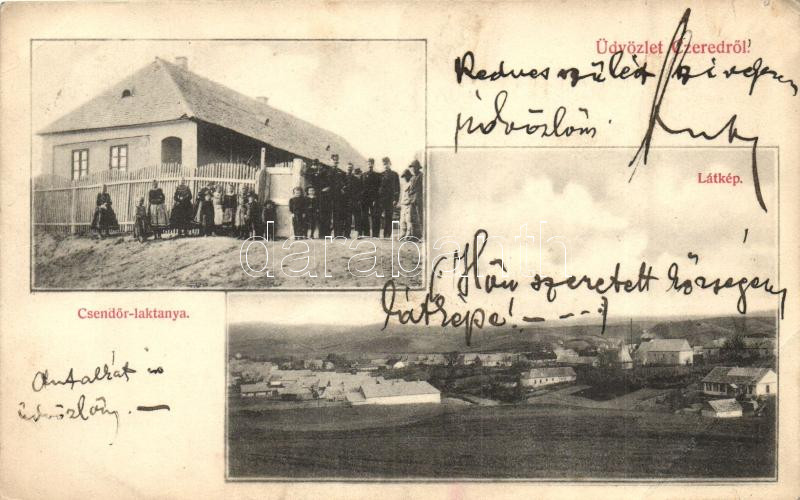 Üdvözlet Czeredről!
Kedves szüleit szívesen
üdvözlöm.
Látkép.
Hőn szeretett községem
látképe!
Csendőr-laktanya.
Antalkát is
üdvözlöm.
darabanth